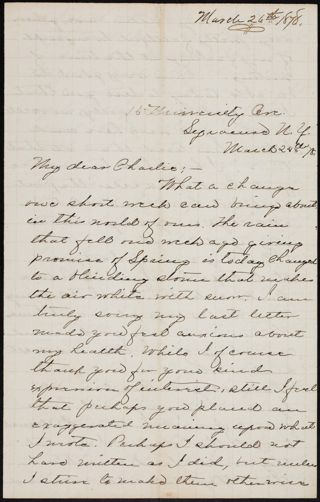 March 26th 1878.
15 University Ave.
Syracuse N.Y.
March 24th
My dear Charlie; —
What a change
one short week can bring about
in this world of ours. The rain
that fell one week ago giving
promise of Spring is today changed
to a blinding storm that makes
the air white with snow. I am
truly sorry my last letter
made you feel anxious about
my health. While I of course
thank you for your kind
expression of interest, still I feel
that perhaps you placed an
exaggerated meaning upon what
I wrote. Perhaps I should not
have written as I did, but unless
I strive to make them otherwise